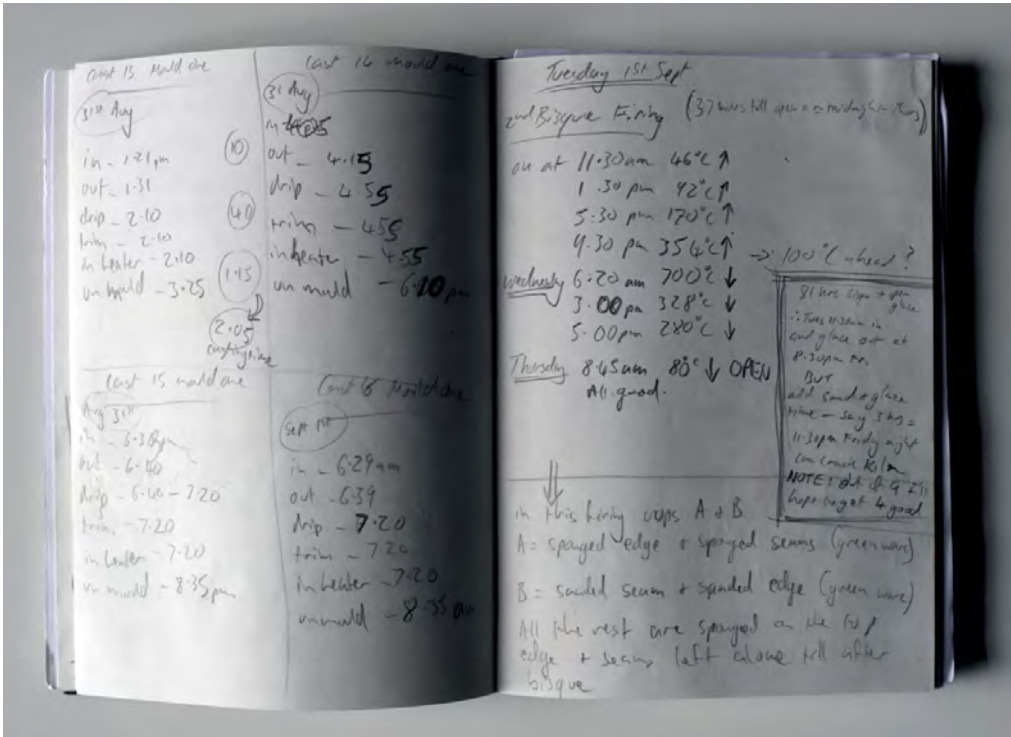 Cast 13 Mould one
31st Aug
in - 1.21pm
out - 1.31
drip - 2.10
trim - 2.10
in heater - 2.10
un mould - 3.25
10
40
1.15
2.05
casting time
Cast 14 mould one
31 Aug
in
out - 4.15
drip - 4.55
trim - 4.55
in heater - 4.55
un mould - 6.10 pm
Cast 15 mould one
Aug 31st
in - 6.30pm
out - 6.40
drip - 6.40 - 7.20
trim - 7.20
in heater - 7.20
un mould - 8.35pm
Cast 16 Mould one
Sept 1st
in - 6.29am
out - 6.39
drip - 7.20
trim - 7.20
in heater - 7.20
unmould - 8.35 am
Tuesday 1st Sept
2nd Bisque Firing (37 hours till open
on at 11.30am 46°C ↑
1.30 pm 92°C ↑
5.30 pm 170°C ↑
9.30 pm 354°C ↑ → 100°C ahead?
Wednesday 6.20 am 700°C ↓
3.00pm 328°C ↓
5.00pm 280°C ↓
Thursday 8.45am 80°C ↓ OPEN
All good.
81 hrs
glaze
∴ Tues 11.30am in
and glaze out at
8.30pm Fri.
BUT
add sand + glaze
time - say 3 hrs =
11.30pm Friday night
NOTE! out of 9 I'll
hope to get 4 good
in this firing cups A + B
A = sponged edge + sponged seams (greenware)
B = sanded seam + sanded edge (green ware)
All the rest are sponged on the top
edge + seams left alone till after
bisque